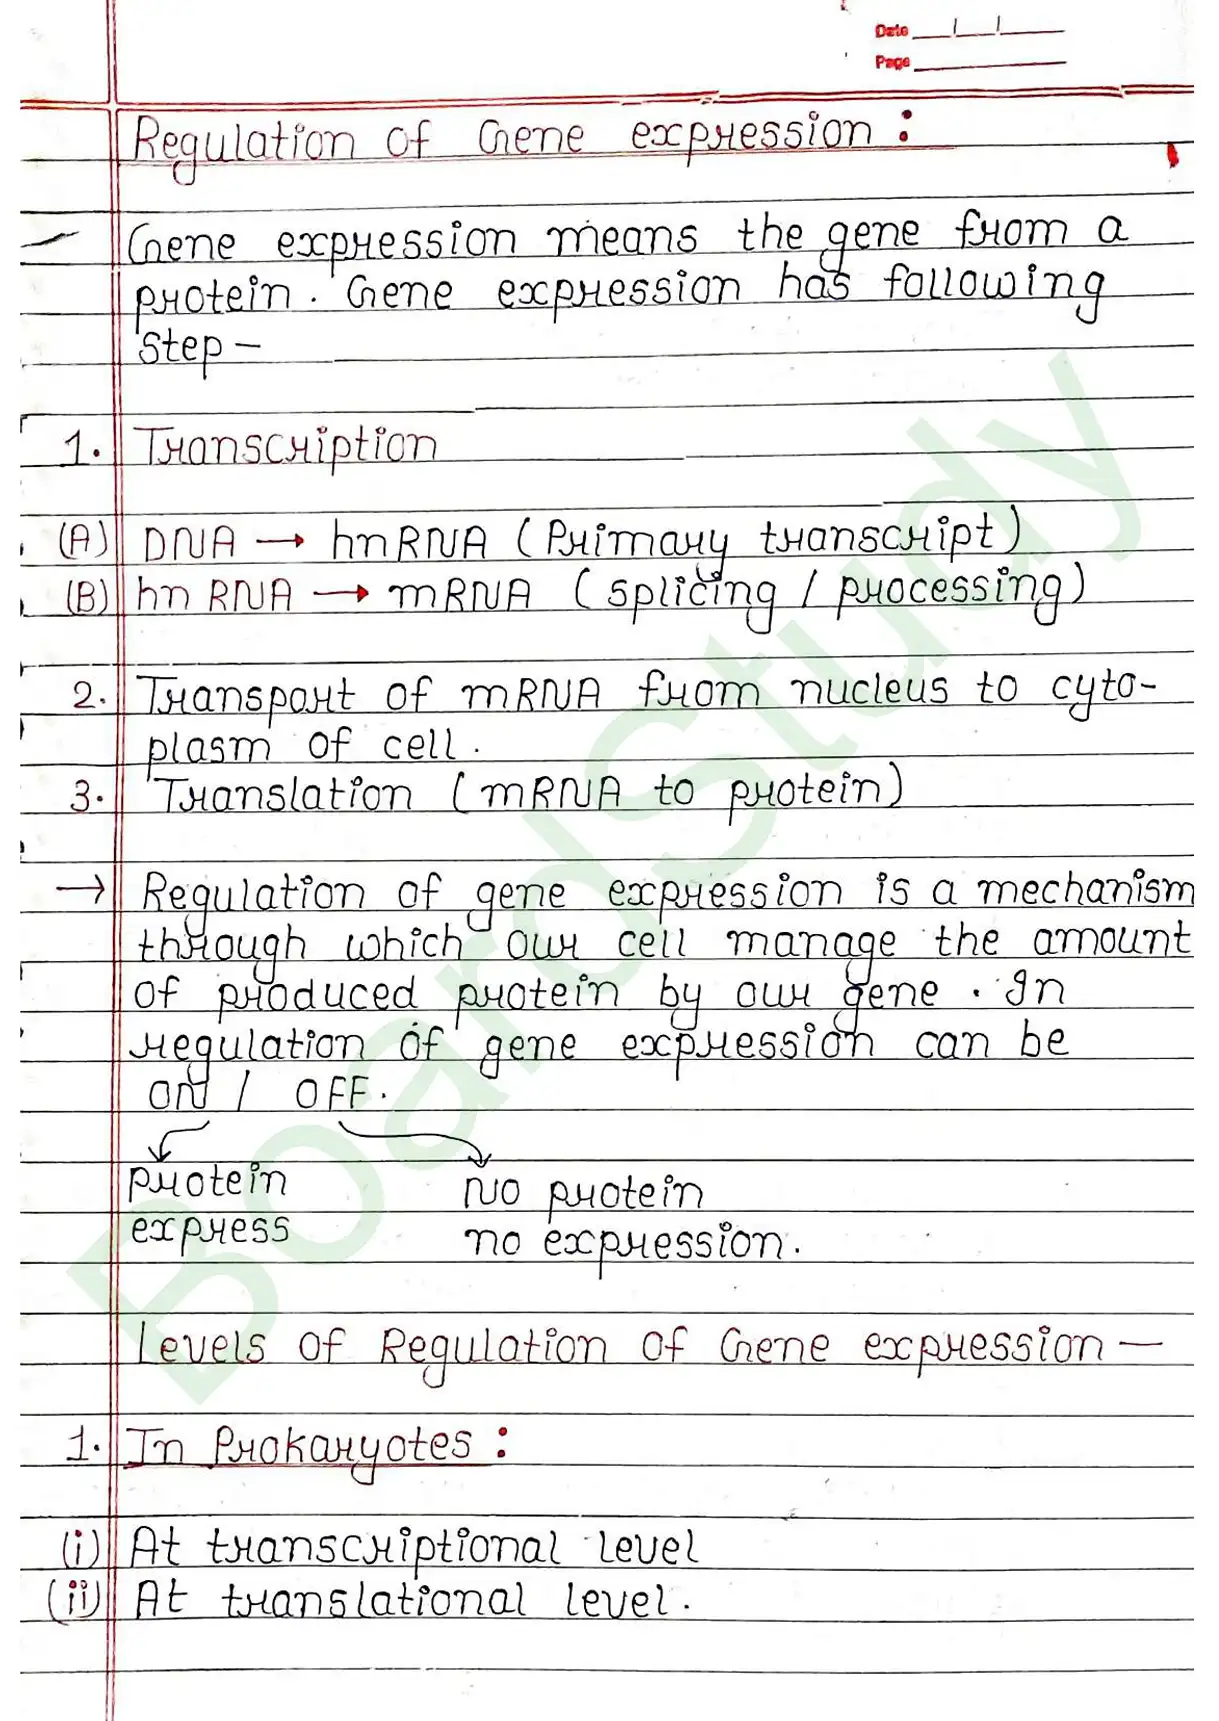 Date
Page
Regulation of Gene expression :
Gene expression means the gene from a
protein. Gene expression has following
step -
1. Transcription
(A) DNA → hnRNA (Primary transcript)
(B) hn RNA → mRNA (splicing / processing)
2. Transport of mRNA from nucleus to cyto-
plasm of cell.
3. Translation (mRNA to protein)
→ Regulation of gene expression is a mechanism
through which our cell manage the amount
of produced protein by our gene. In
regulation of gene expression can be
ON / OFF.
protein
express
No protein
no expression.
Levels of Regulation of Gene expression —
1. In Prokaryotes :
(i) At transcriptional level
(ii) At translational level.
BoardStudy